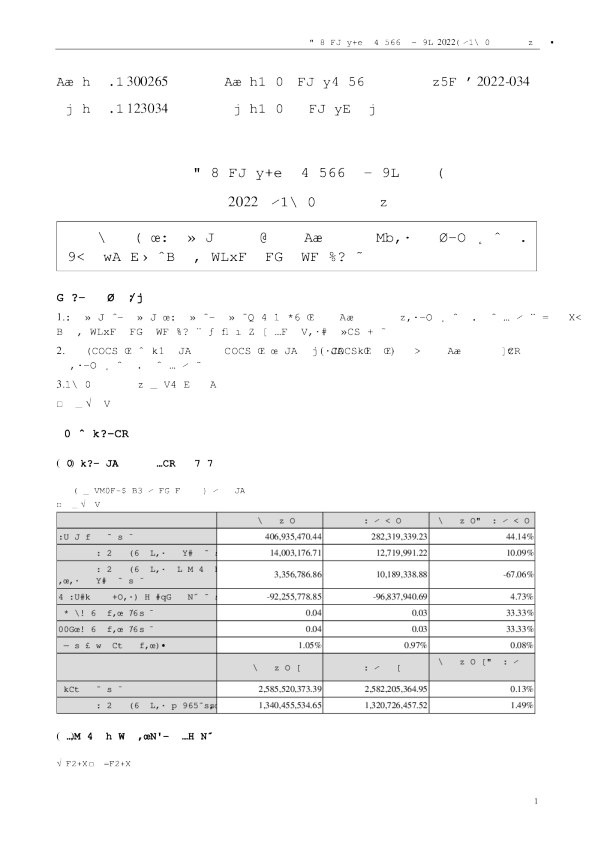 " 8 FJ y+e 4 566 - 9L 2022( ⁄1\ 0 z •
Aæ h .1 300265 Aæ h1 0 FJ y4 56 z5F ’ 2022-034
j h .1 123034 j h1 0 FJ yE j
" 8 FJ y+e 4 566 - 9L (
2022 ⁄1\ 0 z
\ ( œ: » J @ Aæ Mb‚· Ø-O ¸ ˆ .
9< wA E› ˆB , WLxF FG WF %? ˜
G ?- Ø ⁄j
1.: » J ˆ- » J œ: » ˆ- » ˜Q 4 1 *6 Œ Aæ z‚·-O ¸ ˆ . ˆ … ⁄ ¨ = X<
B , WLxF FG WF %? ¨ ƒ fl ı Z [ …F V‚·# »CS + ˜
2. (COCS Œ ˆ k1 JA COCS Œ œ JA j( Œ) > Aæ
‚·-O ¸ ˆ . ˆ … ⁄ ˜
3.1\ 0 z _ V4 E A
□ _√ V
0 ˆ k?-CR
( 0) k?- JA …CR 7 7
( _ VM0F-$ B3 ⁄ FG F ) ⁄ JA
□ _√ V
\ z O : ⁄ < O \ z O" : ⁄ < O
:U J f ˜ s ˜ 406,935,470.44 282,319,339.23 44.14%
: 2 (6 L‚· Y# ˜ s 14,003,176.71 12,719,991.22 10.09%
: 2 (6 L‚· L M 4
‚œ‚· Y# ˜ s ˜ 3,356,786.86 10,189,338.88 -67.06%
4 :U#k +O‚·) H #qG N˝ ˜ s -92,255,778.85 -96,837,940.69 4.73%
* \! 6 f‚œ 76s ˜ 0.04 0.03 33.33%
00Gœ! 6 f‚œ 76s ˜ 0.04 0.03 33.33%
- s £ w Ct f‚œ)• 1.05% 0.97% 0.08%
\ z O [ : ⁄ [ \ z O [" : ⁄
kCt ˜ s ˜ 2,585,520,373.39 2,582,205,364.95 0.13%
: 2 (6 L‚· p 965˜s 1,340,455,534.65 1,320,726,457.52 1.49%
( …)M 4 h W ‚œN'- …H N˝
√ F2+X□ -F2+X
1